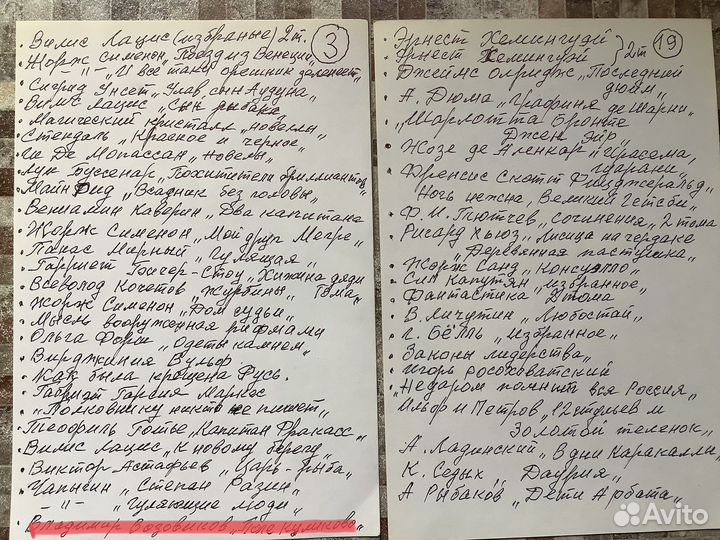 3
• Вилис Лацис (избраные) 2т.
• Жорж Сименон „Поезд из Венеции"
– " – „И всё таки орешник зеленеет"
• Сигрид Унсет „Улав, сын Аудуна"
• Вилис Лацис „Сын рыбака"
• Магический кристалл „новеллы"
• Стендаль „Красное и черное"
• Ги Де Мопассан „Новелы"
• Луи Буссенар „Похитители бриллиантов"
• Майн Рид „Всадник без головы"
• Вениамин Каверин „Два капитана
• Жорж Сименон „Мой друг Мегре"
• Панас Мирный „Гулящая"
• Гарриет Бичер-Стоу „Хижина дяди
Тома"
• Всеволод Кочетов „Журбины"
• Жорж Сименон „Дом судьи"
• Мысль вооруженная рифмами
• Ольга Форш „Одеты камнем"
• Вирджиния Вульф
• Как была крещена Русь.
• Габриэл Гарсия Маркес
„Полковнику никто не пишет"
• Теофиль Готье „Капитан Фракасс"
• Вилис Лацис „К новому берегу"
• Виктор Астафьев „Царь-рыба"
• Чапыгин „Степан Разин"
– " – „Гулящие люди"
• Владимир Возовиков „Поле Куликово"
19
• Эрнест Хемингуэй
• Эрнест Хемингуэй } 2т
• Джеймс Олридж „Последний
дюйм"
• А. Дюма „Графиня де Шарни"
• „Шарлотта Бронте
Джен Эйр"
• Жозе де Аленкар „Ирасема,
гуарани"
• Френсис Скотт Фицджеральд
Ночь нежна, Великий Гетсби"
• Ф. И. Тютчев „сочинения" 2 тома
• Ричард Хьюз „Лисица на чердаке
„Деревянная пастушка"
• Жорж Санд „Консуэлло"
• Сил Капутян „избранное"
• Фантастика 2 тома
• В. Личутин „Любостай"
• Г. Бёлль „Избранное"
• Законы лидерства"
• Игорь Росоховатский
• „Недаром помнит вся Россия"
• Ильф и Петров „12 стульев и
Золотой теленок"
• А. Ладинский „В дни Каракаллы"
• К. Седых „Даурия"
• А Рыбаков „Дети Арбата"
Avito